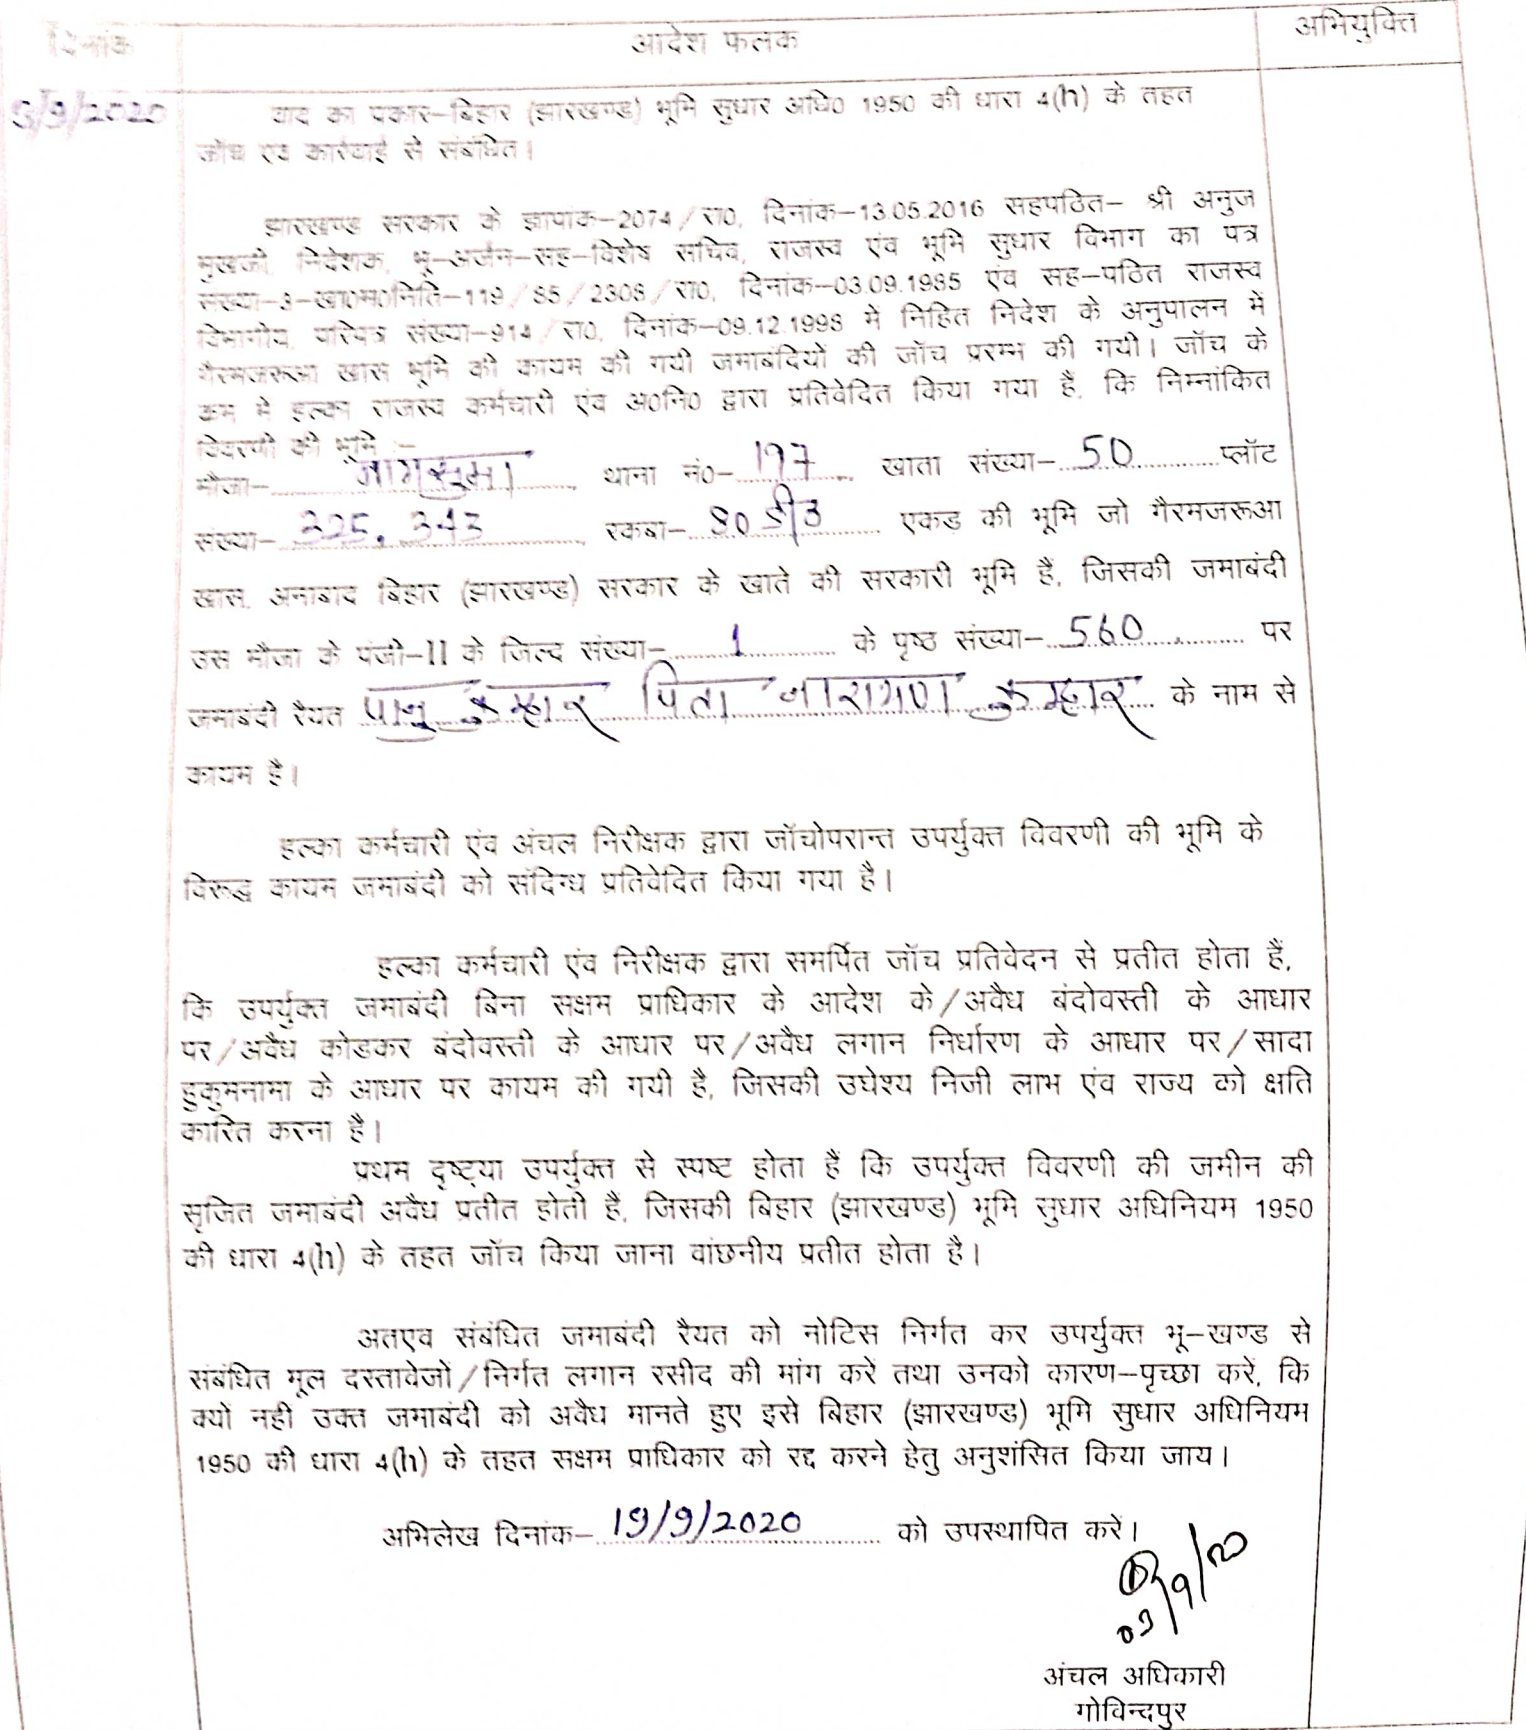 दिनांक आदेश फलक अभियुक्ति
3/9/2020 वाद का प्रकार–बिहार (झारखण्ड) भूमि सुधार अधि0 1950 की धारा 4(h) के तहत
जॉच एवं कार्रवाई से संबंधित।
झारखण्ड सरकार के ज्ञापांक–2074/रा0, दिनांक–13.05.2016 सहपठित– श्री अनुज
मुखर्जी, निदेशक, भू–अर्जन–सह–विशेष सचिव, राजस्व एंव भूमि सुधार विभाग का पत्र
संख्या–3–खा0म0निति–119/85/2308/रा0, दिनांक–03.09.1985 एंव सह–पठित राजस्व
विभागीय परिपत्र संख्या–914/रा0, दिनांक–09.12.1998 में निहित निदेश के अनुपालन में
गैरमजरूआ खास भूमि की कायम की गयी जमाबंदियों की जॉच प्ररम्भ की गयी। जॉच के
कम में हल्का राजस्व कर्मचारी एंव अ0नि0 द्वारा प्रतिवेदित किया गया हैं, कि निम्नांकित
विवरणी की भूमि :–
मौजा– थाना नं0–197 खाता संख्या–50 प्लॉट
संख्या–325, 343 रकबा–80 डी0 एकड की भूमि जो गैरमजरूआ
खास, अनाबाद बिहार (झारखण्ड) सरकार के खाते की सरकारी भूमि हैं, जिसकी जमाबंदी
उस मौजा के पंजी–II के जिल्द संख्या–1 के पृष्ठ संख्या–560 पर
जमाबंदी रैयत पानु कुम्हार पिता नारायण कुम्हार के नाम से
कायम है।
हल्का कर्मचारी एंव अंचल निरीक्षक द्वारा जॉचोपरान्त उपर्युक्त विवरणी की भूमि के
विरूद्ध कायम जमाबंदी को संदिग्ध प्रतिवेदित किया गया है।
हल्का कर्मचारी एंव निरीक्षक द्वारा समर्पित जॉच प्रतिवेदन से प्रतीत होता हैं,
कि उपर्युक्त जमाबंदी बिना सक्षम प्राधिकार के आदेश के/अवैध बंदोवस्ती के आधार
पर/अवैध कोडकर बंदोवस्ती के आधार पर/अवैध लगान निर्धारण के आधार पर/सादा
हुकुमनामा के आधार पर कायम की गयी है, जिसकी उघेश्य निजी लाभ एंव राज्य को क्षति
कारित करना है।
प्रथम दृष्ट्या उपर्युक्त से स्पष्ट होता हैं कि उपर्युक्त विवरणी की जमीन की
सृजित जमाबंदी अवैध प्रतीत होती हैं, जिसकी बिहार (झारखण्ड) भूमि सुधार अधिनियम 1950
की धारा 4(h) के तहत जॉच किया जाना वांछनीय प्रतीत होता है।
अतएव संबंधित जमाबंदी रैयत को नोटिस निर्गत कर उपर्युक्त भू–खण्ड से
संबंधित मूल दस्तावेजों/निर्गत लगान रसीद की मांग करें तथा उनको कारण–पृच्छा करें, कि
क्यों नही उक्त जमाबंदी को अवैध मानते हुए इसे बिहार (झारखण्ड) भूमि सुधार अधिनियम
1950 की धारा 4(h) के तहत सक्षम प्राधिकार को रद्द करने हेतु अनुशंसित किया जाय।
अभिलेख दिनांक–19/9/2020 को उपस्थापित करें।
03/9/20
अंचल अधिकारी
गोविन्दपुर